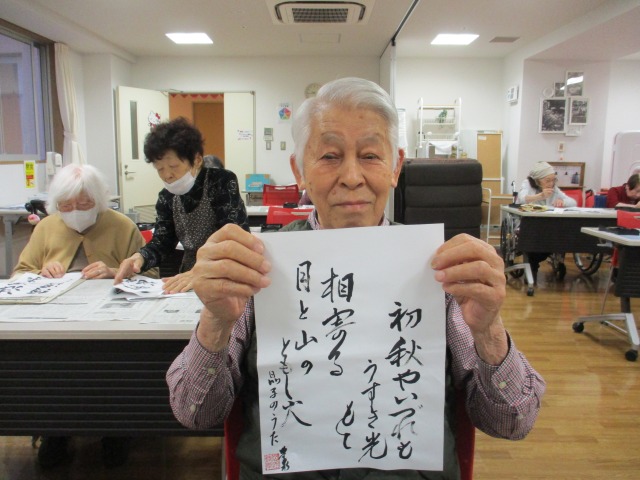 初秋やいづれも
うすき光
もて
相寄る
月と山の
ともし火
晶子のうた